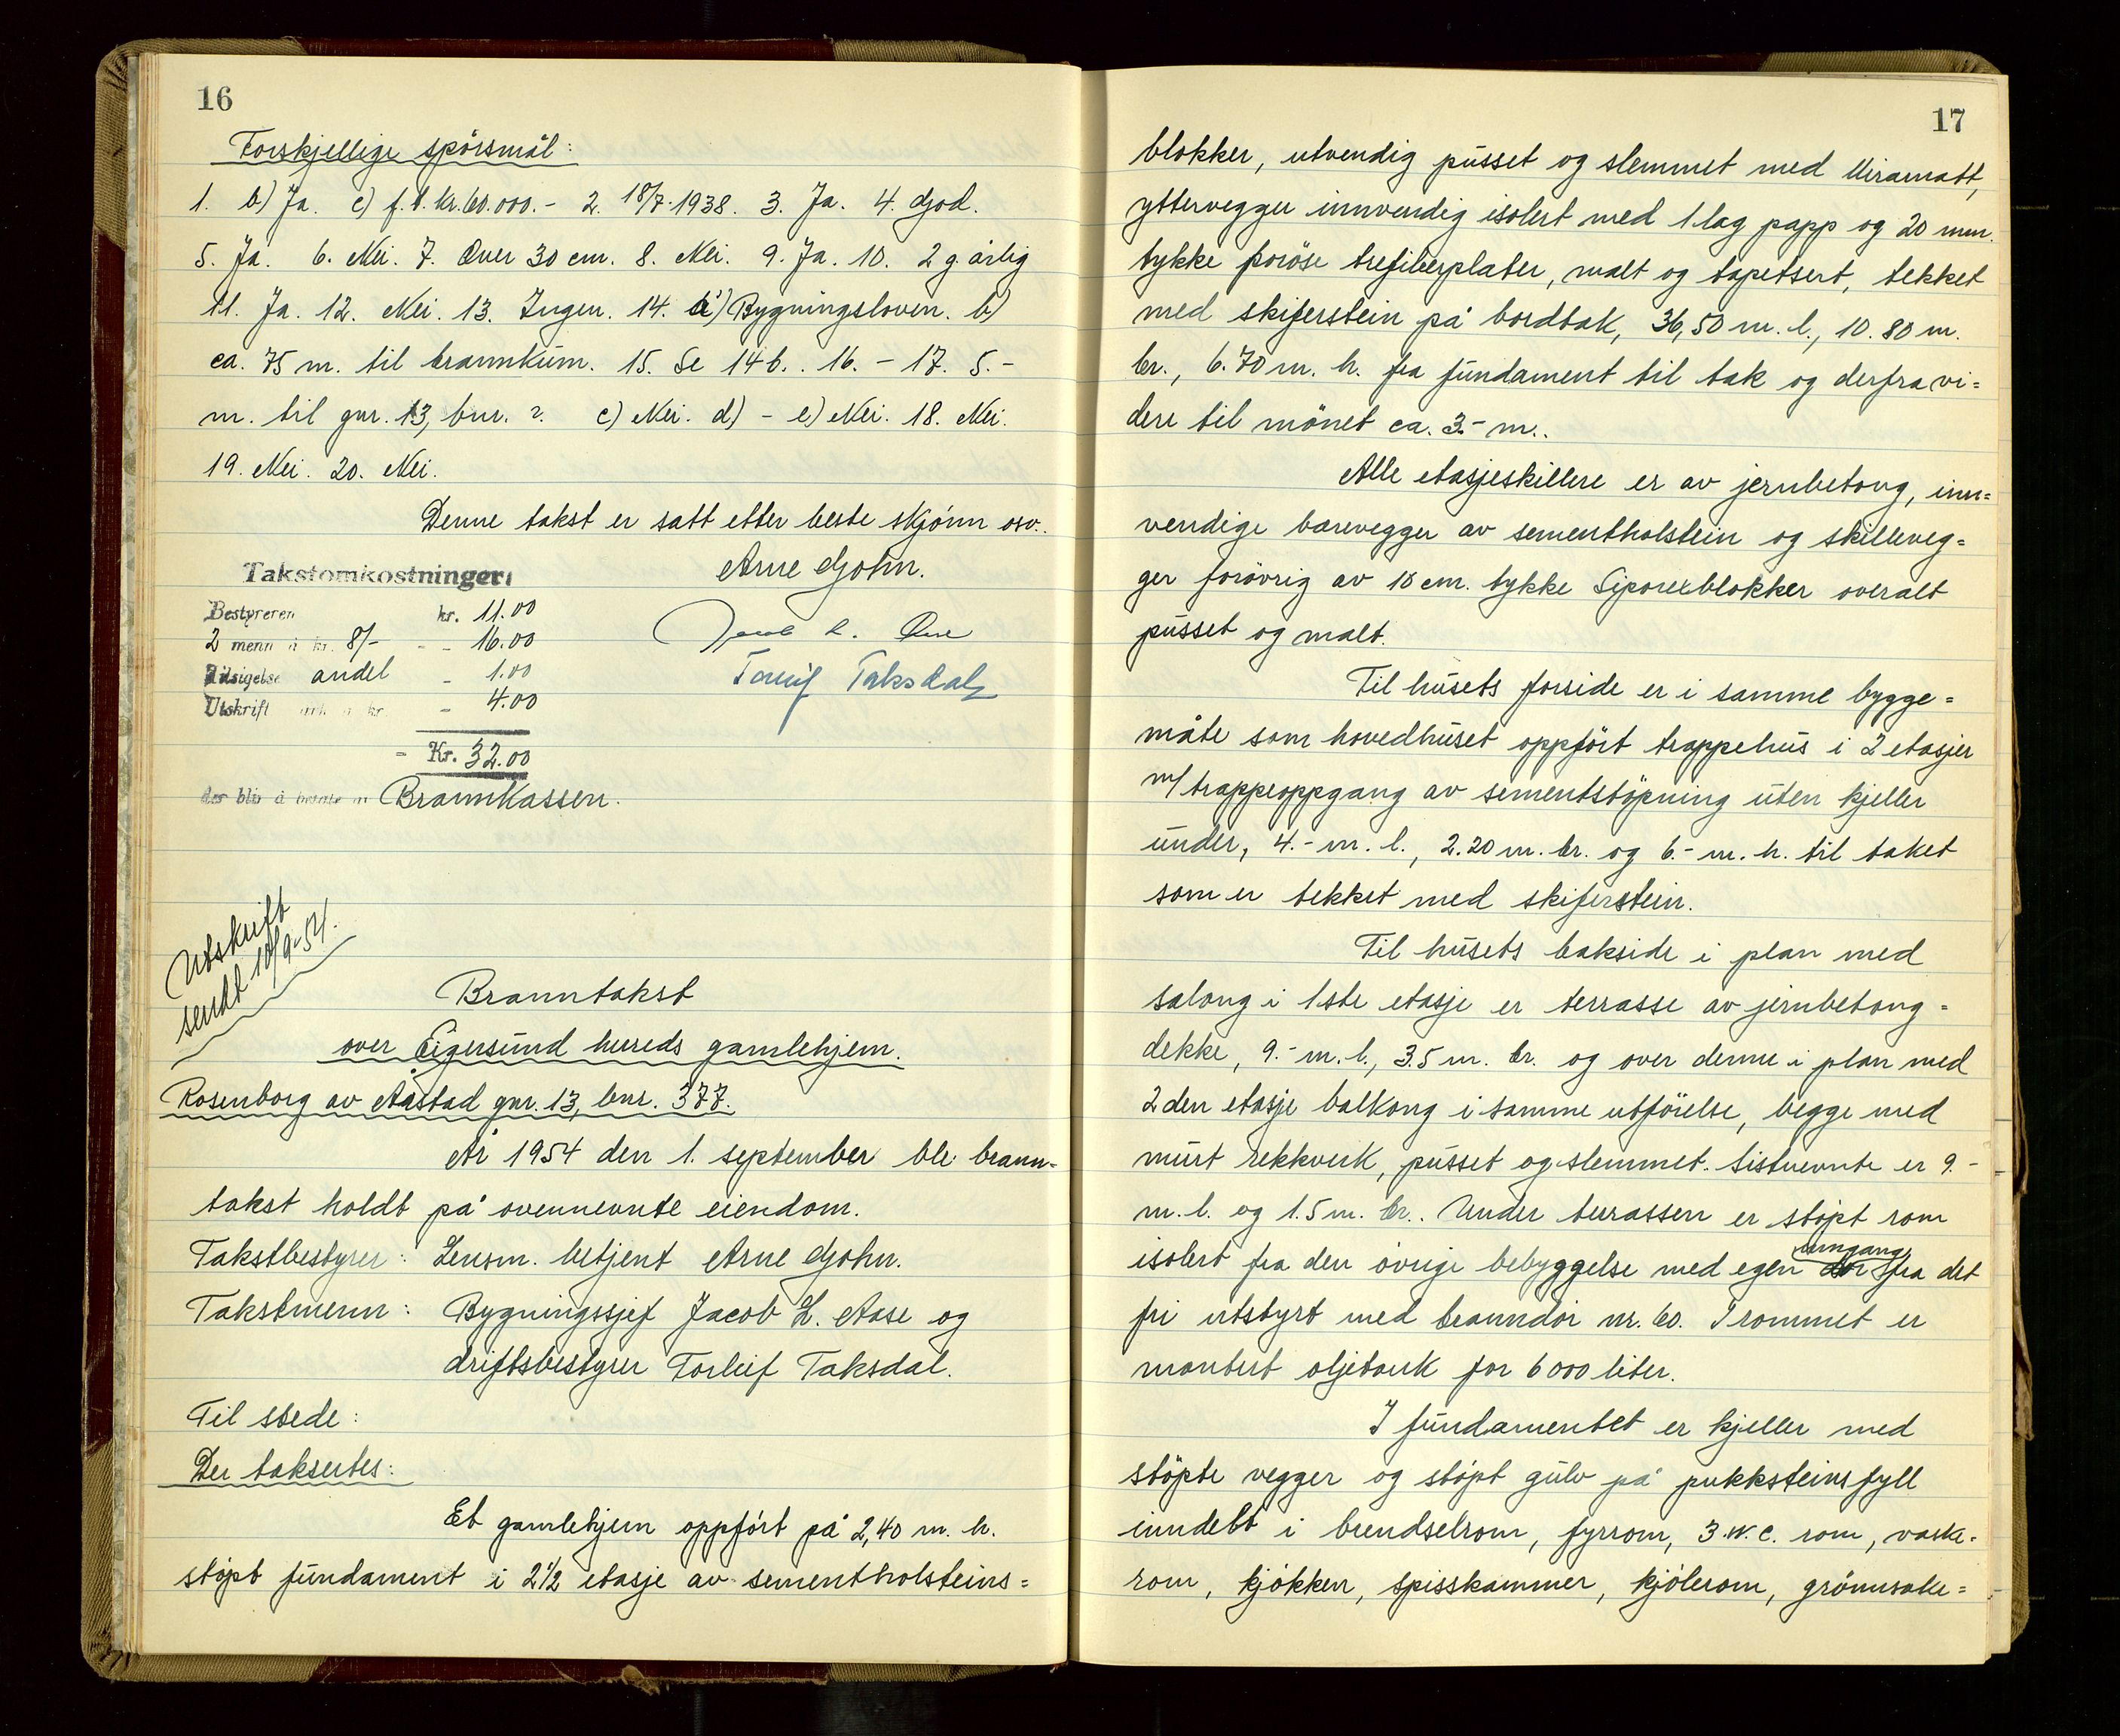 16
Forskjellige spørsmål:
1. b) Ja. c) f.t. kr. 60.000.- 2. 18/7-1938. 3. Ja. 4. God.
5. Ja. 6. Nei. 7. Over 30 cm. 8. Nei. 9. Ja. 10. 2 g. årlig
11. Ja. 12. Nei. 13. Ingen. 14. a) Bygningsloven. b)
ca. 75 m. til brannkum. 15. Se 14 b.. 16. - 17. 5.-
m. til gnr. 13, bnr. ?. c) Nei. d) - e) Nei. 18. Nei.
19. Nei. 20. Nei.
Denne takst er satt etter beste skjønn osv..
Arne Gjohn.
Takstomkostninger:
Bestyreren kr. 11.00
2 menn à kr. 8/- - - 16.00
Tilsigelse andel - 1.00
Utskrift ark à kr - 4.00
- Kr. 32.00
Torleif Taksdal
der blir å betale av Brannkassen.
Utskrift
sendt 10/9-54.
Branntakst
over Eigersund hereds gamlehjem.
Rosenborg av Aastad gnr. 13, bnr. 377.
År 1954 den 1. september ble brann-
takst holdt på ovennevnte eiendom.
Takstbestyrer: Lensm. betjent Arne Gjohn.
Takstmenn: Bygningssjef Jacob L. Aase og
driftsbestyrer Torleif Taksdal.
Til stede:
Der taksertes:
Et gamlehjem oppført på 2,40 m. h.
støpt fundament i 2 1/2 etasje av sementholsteins=
17
blokker, utvendig pusset og slemmet med Miramatt,
yttervegger innvendig isolert med 1 lag papp og 20 mm.
tykke porøse trefiberplater, malt og tapetsert, tekket
med skiferstein på bordtak, 36,50 m. l., 10.80 m.
br., 6.70 m. h. fra fundament til tak og derfra vi=
dere til mønet ca. 3.- m..
Alle etasjeskillere er av jernbetong, inn=
vendige bærevegger av sementholstein og skilleveg=
ger forøvrig av 10 cm. tykke Siporexblokker overalt
pusset og malt.
Til husets forside er i samme bygge=
måte som hovedhuset oppført trappehus i 2 etasjer
m/ trappeoppgang av sementstøpning uten kjeller
under, 4.- m. l., 2.20 m. br. og 6.- m. h. til taket
som er tekket med skiferstein.
Til husets bakside i plan med
salong i 1ste etasje er terrasse av jernbetong=
dekke, 9.- m. l., 3.5 m. br. og over denne i plan med
2den etasje balkong i samme utførelse, begge med
murt rekkverk, pusset og slemmet. Sistnevnte er 9.-
m. l. og 1.5 m. br.. Under terrassen er støpt rom
isolert fra den øvrige bebyggelse med egen inngang fra det
fri utstyrt med branndør nr. 60. I rommet er
montert oljetank for 6000 liter.
I fundamentet er kjeller med
støpte vegger og støpt gulv på pukksteinsfyll
inndelt i brendselrom, fyrrom, 3 w.c. rom, vaske=
rom, kjøkken, spisskammer, kjølerom, grønnsake=